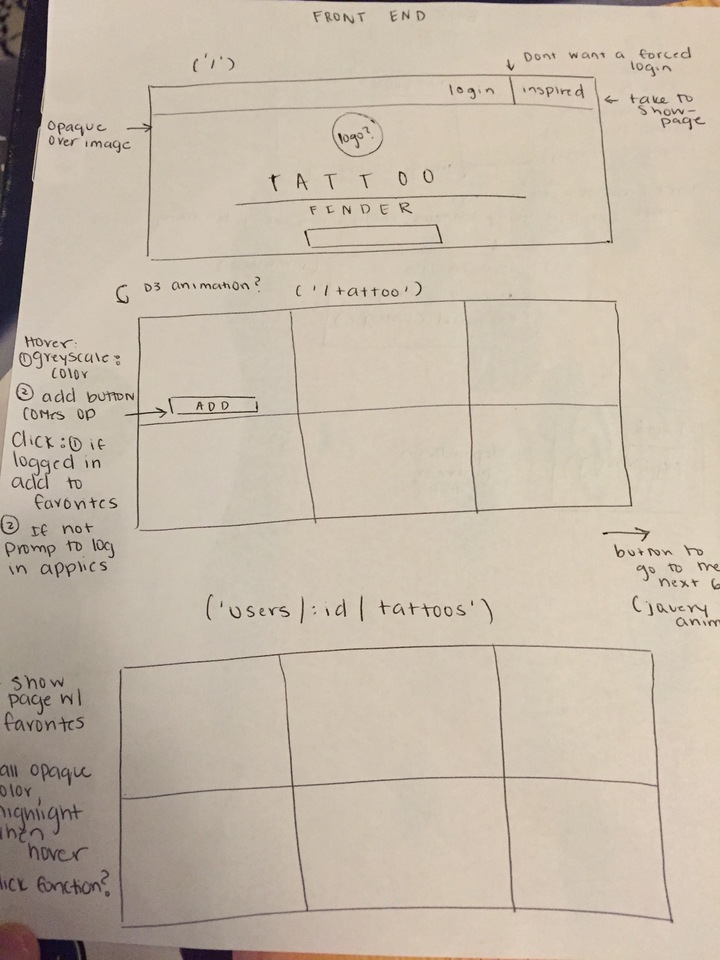 FRONT END
('/')
Dont want a forced
login
login
inspired
take to
show-
page
opaque
over image
logo?
TATTOO
FINDER
D3 animation?
('/tattoo')
Hover:
① greyscale:
color
② add button
comes up
ADD
Click: ① if
logged in
add to
favorites
② If not
promp to log
in applies
button to
go to the
next 6
(jquery
anim
('users/:id/tattoos')
show
page w/
favorites
all opaque
olor,
highlight
when
hover
lick function?